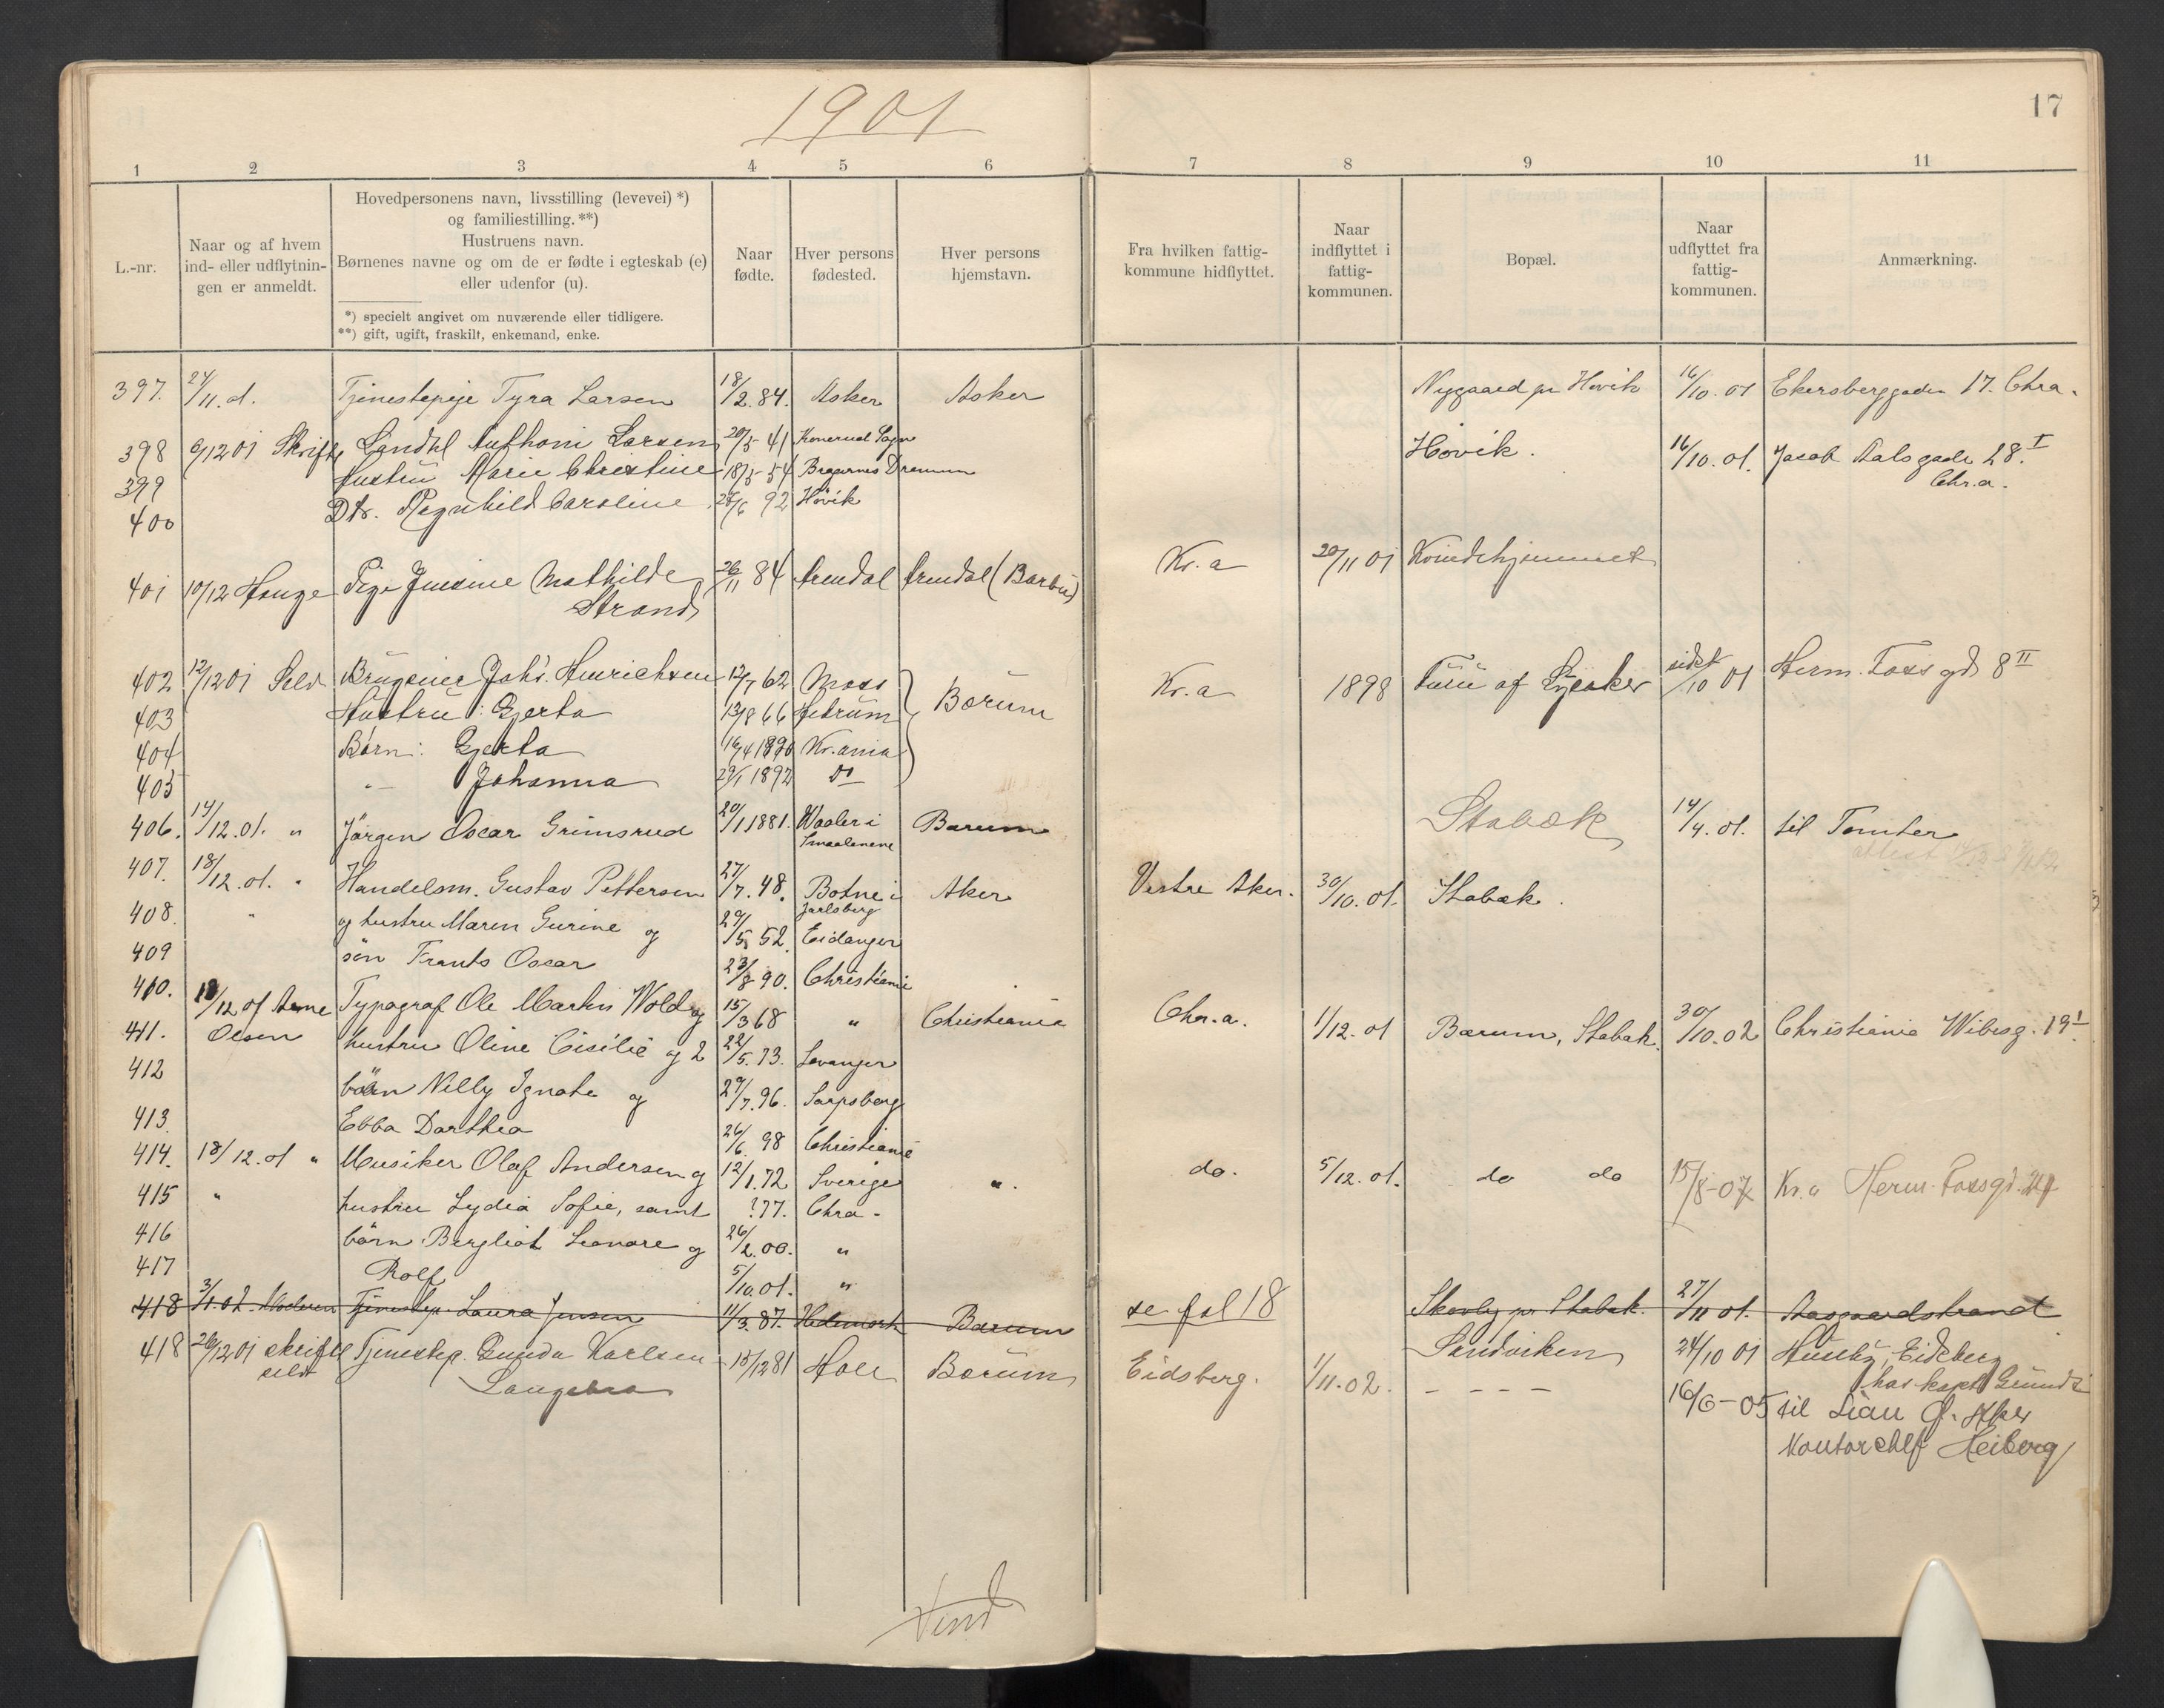 1901
17
1 2 3 4 5 6 7 8 9 10 11
L.-nr.
Naar og af hvem
ind- eller udflytnin-
gen er anmeldt.
Hovedpersonens navn, livsstilling (levevei) *)
og familiestilling. **)
Hustruens navn.
Børnenes navne og om de er fødte i egteskab (e)
eller udenfor (u).
*) specielt angivet om nuværende eller tidligere.
**) gift, ugift, fraskilt, enkemand, enke.
Naar
fødte.
Hver persons
fødested.
Hver persons
hjemstavn.
Fra hvilken fattig-
kommune hidflyttet.
Naar
indflyttet i
fattig-
kommunen.
Bopæl.
Naar
udflyttet fra
fattig-
kommunen.
Anmærkning.
397. 27/11. d. Tjenestepige Tyra Larsen 18/2.84. Asker Asker Nygaard pr Høvik 16/10.01 Ekersberggaden 17. Chra.
398 6/12 01 Skriftl Landhl Anthoni Larsen 20/5 41 Konerud Sogn Høvik. 16/10.01. Jacob Aalsgade 28. I
Chr.a.
399 Hustru Marie Christine 18/5 54 Bragernes Drammen
400 Dtr. Ragnhild Caroline 28/6 92 Høvik
401 10/12 Hauge Pige Jensine Mathilde 26/11 84 Arendal Arendal (Barbu) Kr.a 20/11 01 Kvindehjemmet
Strand
402 12/12 01 Selv Brugseier Johs. Henrichsen 12/7 62 Moss Bærum Kr.a 1898 Furu af Lysaker sidst/10 01 Herm. Foss gd 8 II
403 Hustru: Gjerta 13/8 66 Hedrum
404 Børn: Gjerta 16/4 1890 Kr.ania
405 " Johanna 29/1 1892 Do
406. 14/12.01. " Jørgen Oscar Grimsrud 20/1 1881. Waaler i Smaalenene Bærum Stabæk 14/4.01. til Tomter
407. 18/12.01. " Handelsm. Gustav Pettersen 27/7.48. Botne i Jarlsberg Aker Vestre Aker. 30/10.01. Stabæk.
408. " og hustru Maren Gurine og 29/5 52. Eidanger
409 søn Frants Oscar 23/8 90. Christiania
410. 18/12 01 Arne Typograf Ole Martin Wold og 15/3 68 " Christiania Chr.a. 1/12.01 Bærum, Stabæk. 30/10.02 Christiania Wibesg. 19 I
411. Olsen hustru Oline Cisilie og 2 22/5.73. Levanger
412 børn Nelly Ignate og 29/7.96. Sarpsborg
413. Ebba Dorthea 26/6. 98 Christiania
414. 18/12.01 " Musiker Olaf Andersen og 12/1.72 Sverige ". do. 5/12.01. do do 15/8-07 Kr.a Herm. Fossgd. 24
415 " hustru Lydia Sofie, samt ?77. Chra.
416 børn Bergliot Leonore og 26/2.00. "
417 Rolf 5/10.01. "
418 3/1.02. Moderen Tjenestep. Laura Jensen 11/3.87. Hedemark Bærum se fol 18 Skovly pr Stabæk. 27/11 01. Aasgaardstrand
418 26/12 01 skriftl Tjenestep. Gunda Karlsen 15/12 81 Hole Bærum Eidsberg. 1/11.02. Sandviken 24/10 01 Huseby, Eidsberg
selv Langebro
- - - - 16/6-05 til Lian Ø. Aker
Kontorchef Heiberg
Vend